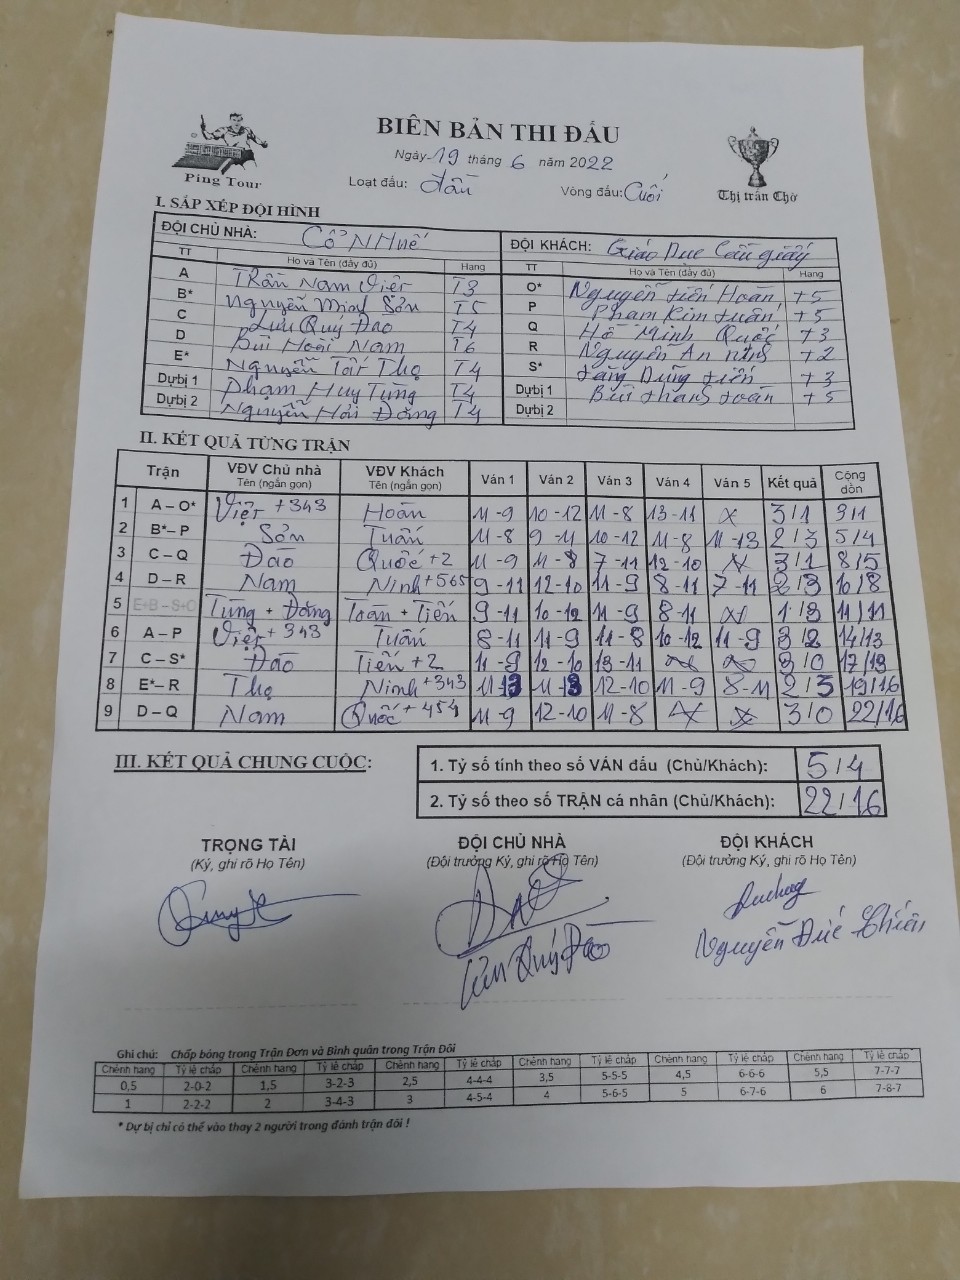 BIÊN BẢN THI ĐẤU
Ping Tour
Ngày 19 tháng 6 năm 2022
Loạt đấu: Đầu Vòng đấu: Cuối
Thị trấn Chờ
I. SẮP XẾP ĐỘI HÌNH
ĐỘI CHỦ NHÀ: Cổ Nhuế ĐỘI KHÁCH: Giáo Dục Cầu giấy
TT Họ và Tên (đầy đủ) Hạng TT Họ và Tên (đầy đủ) Hạng
A Trần Nam Việt T3 O* Nguyễn Tiến Hoàn T5
B* Nguyễn Minh Sơn T5 P Phạm Kim Tuấn T5
C Lưu Quý Đạo T4 Q Hồ Minh Quốc T3
D Bùi Hoài Nam T6 R Nguyễn An Ninh T2
E* Nguyễn Tất Thọ T4 S* Tăng Dũng Tiến T3
Dự bị 1 Phạm Huy Tùng T4 Dự bị 1 Bùi Thanh Toàn T5
Dự bị 2 Nguyễn Hải Đăng T4 Dự bị 2
II. KẾT QUẢ TỪNG TRẬN
Trận VĐV Chủ nhà Tên (ngắn gọn) VĐV Khách Tên (ngắn gọn) Ván 1 Ván 2 Ván 3 Ván 4 Ván 5 Kết quả Cộng dồn
1 A – O* Việt +343 Hoàn 11-9 10-12 11-8 13-11 x 3/1 3/1
2 B* – P Sơn Tuấn 11-8 9-11 10-12 11-8 11-13 2/3 5/4
3 C – Q Đạo Quốc +2 11-9 11-8 7-11 12-10 x 3/1 8/5
4 D – R Nam Ninh +565 9-11 12-10 11-9 8-11 7-11 2/3 10/8
5 E+B – S+O Tùng + Đăng Toàn + Tiến 9-11 10-12 11-9 8-11 x 1/3 11/11
6 A – P Việt + 343 Tuấn 8-11 11-9 11-8 10-12 11-9 3/2 14/13
7 C – S* Đạo Tiến +2 11-9 12-10 13-11 x x 3/0 17/13
8 E* – R Thọ Ninh +343 12-10 11-9 8-11 2/3 19/16
9 D – Q Nam Quốc + 454 11-9 12-10 11-8 x x 3/0 22/16
III. KẾT QUẢ CHUNG CUỘC:
1. Tỷ số tính theo số VÁN đấu (Chủ/Khách): 5/4
2. Tỷ số theo số TRẬN cá nhân (Chủ/Khách): 22/16
TRỌNG TÀI ĐỘI CHỦ NHÀ ĐỘI KHÁCH
(Ký, ghi rõ Họ Tên) (Đội trưởng Ký, ghi rõ Họ Tên) (Đội trưởng Ký, ghi rõ Họ Tên)
Lưu Quý Đạo Nguyễn Đức Chiến
Ghi chú: Chấp bóng trong Trận Đơn và Bình quân trong Trận Đôi
Chênh hạng Tỷ lệ chấp Chênh hạng Tỷ lệ chấp Chênh hạng Tỷ lệ chấp Chênh hạng Tỷ lệ chấp Chênh hạng Tỷ lệ chấp Chênh hạng Tỷ lệ chấp
0,5 2-0-2 1,5 3-2-3 2,5 4-4-4 3,5 5-5-5 4,5 6-6-6 5,5 7-7-7
1 2-2-2 2 3-4-3 3 4-5-4 4 5-6-5 5 6-7-6 6 7-8-7
* Dự bị chỉ có thể vào thay 2 người trong đánh trận đôi !